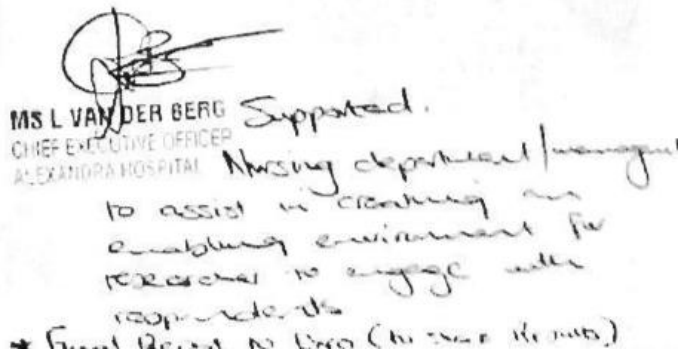 MS L VAN DER BERG
CHIEF EXECUTIVE OFFICER
ALEXANDRA HOSPITAL
Supported.
Nursing department/managemt
to assist in creating an
enabling environment for
researcher to engage with
respondents
* Final Report to (to share results)